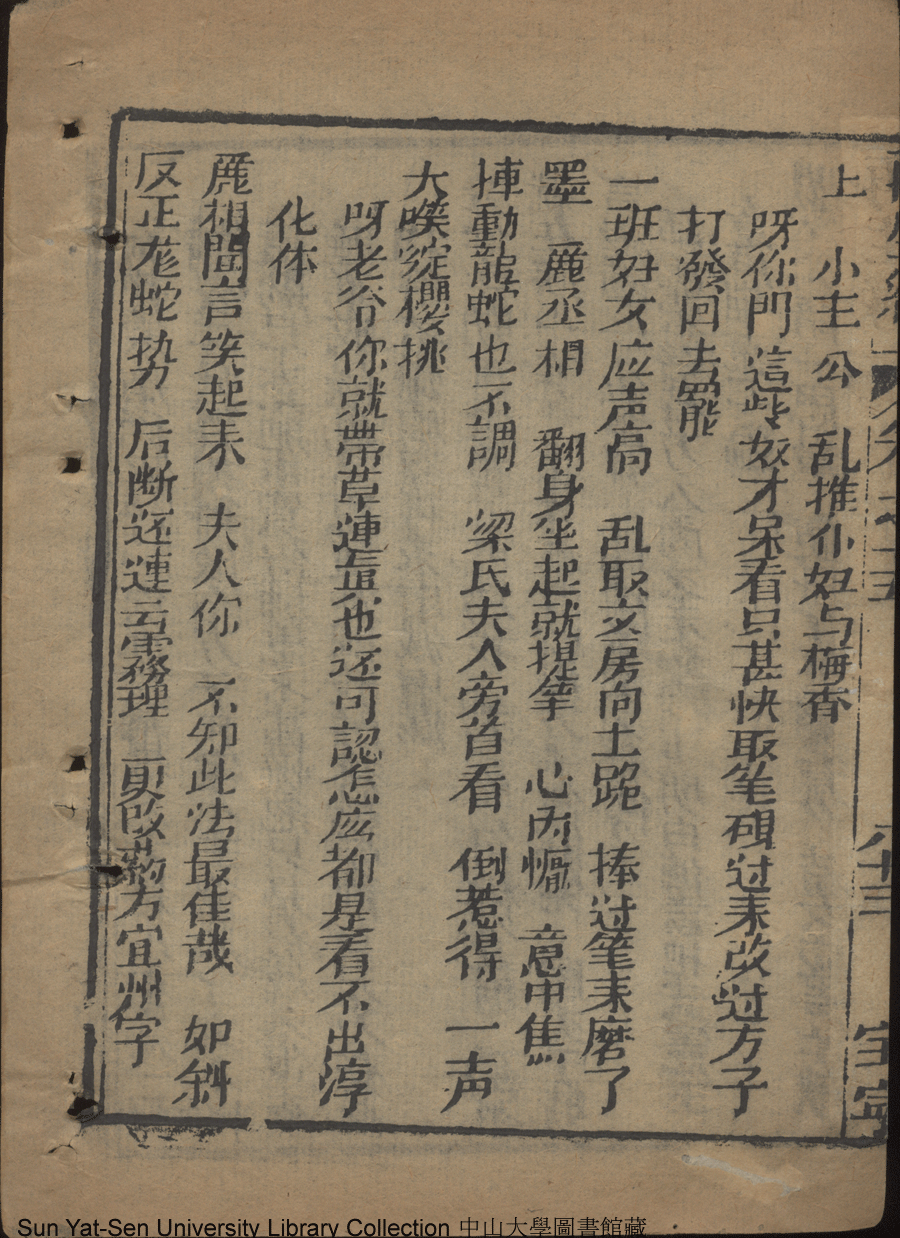 上 小主 公 乱推仆妇与梅香
呀你門這些奴才呆看只甚快取笔硯过来改过方子
打發回去罷
一班妇女应声高 乱取文房向土跪 捧过笔来磨了
墨 厐丞相 翻身坐起就提笔 心内慵 意中焦
揰動龍蛇也不調 梁氏夫人旁首看 倒惹得 一声
大喚綻櫻挑
呀老爷你就帶草連真也还可認怎应都是看不出淳
化体
厐相聞言笑起来 夫人你 不知此法最佳哉 如斜
反正龙蛇势 后断还連云霧理 更改葯方宜州字
八十三
Sun Yat-Sen University Library Collection 中山大學圖書館藏